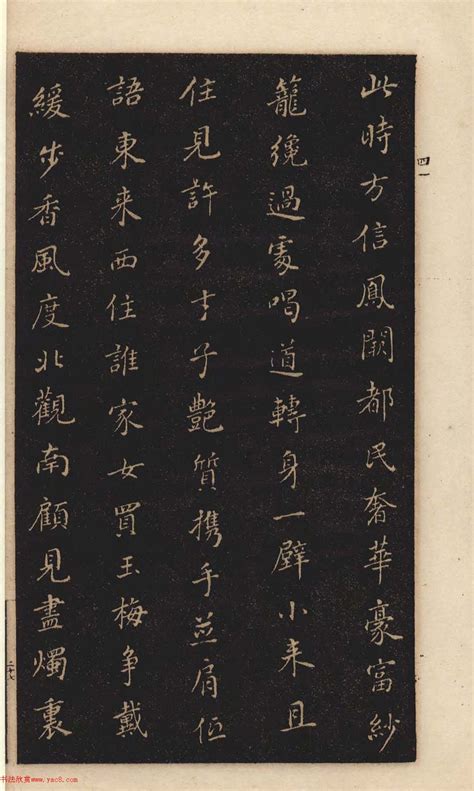 此時方信鳳闕都民奢華豪富紗
籠纔過處喝道轉身一壁小来且
住見許多才子艷質携手並肩低
語東来西住誰家女買玉梅争戴
緩步香風度北觀南顧見盡燭裏
四一
书法欣赏www.yac8.com